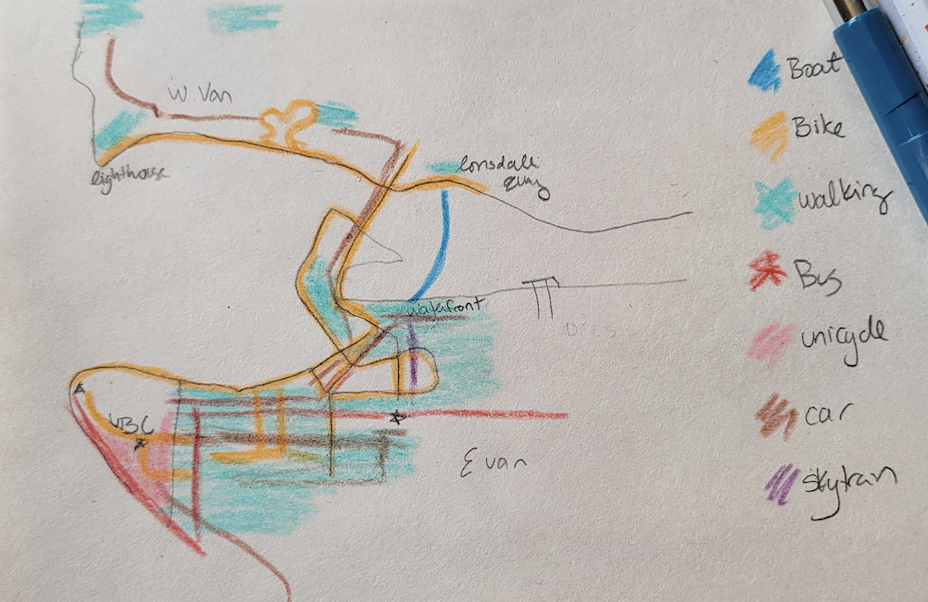 W. Van
lighthouse
lonsdale
quay
waterfront
UBC
E van
Boat
Bike
walking
Bus
unicycle
car
Skytran